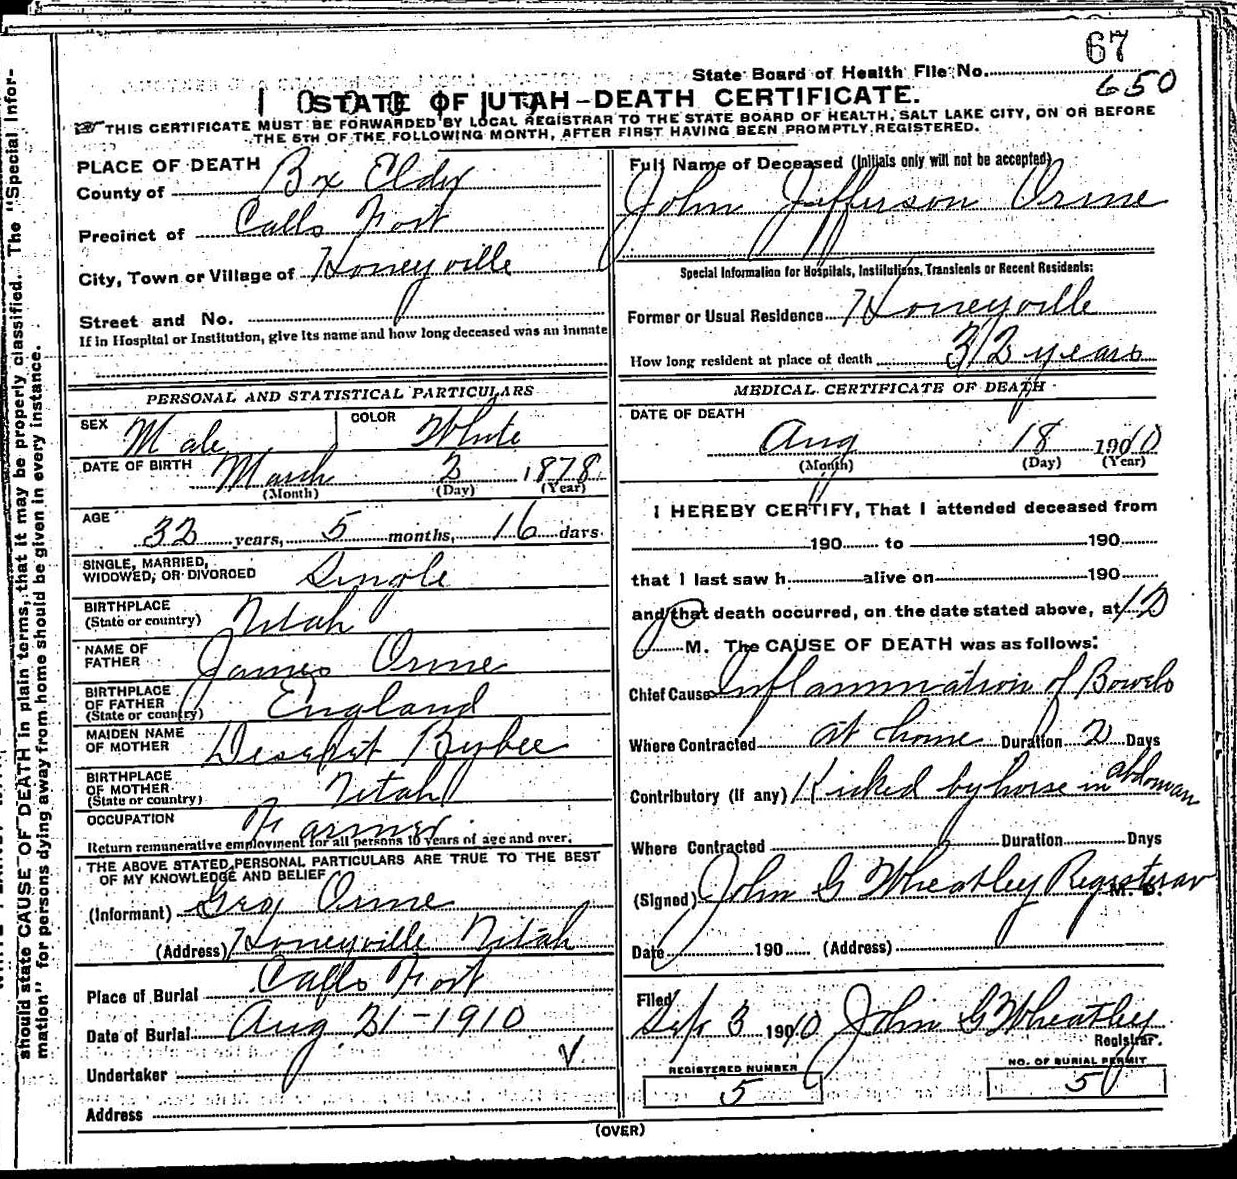 67
State Board of Health File No. 650
STATE OF UTAH–DEATH CERTIFICATE.
THIS CERTIFICATE MUST BE FORWARDED BY LOCAL REGISTRAR TO THE STATE BOARD OF HEALTH, SALT LAKE CITY, ON OR BEFORE
THE 5TH OF THE FOLLOWING MONTH, AFTER FIRST HAVING BEEN PROMPTLY REGISTERED.
PLACE OF DEATH
County of Box Elder
Precinct of Calls Fort
City, Town or Village of Honeyville
Street and No.
If in Hospital or Institution, give its name and how long deceased was an inmate
PERSONAL AND STATISTICAL PARTICULARS
SEX Male COLOR White
DATE OF BIRTH March 2 1878
(Month) (Day) (Year)
AGE 32 years, 5 months, 16 days.
SINGLE, MARRIED,
WIDOWED, OR DIVORCED Single
BIRTHPLACE
(State or country) Utah
NAME OF
FATHER James Orme
BIRTHPLACE
OF FATHER
(State or country) England
MAIDEN NAME
OF MOTHER Deseret Bybee
BIRTHPLACE
OF MOTHER
(State or country) Utah
OCCUPATION Farmer
Return remunerative employment for all persons 10 years of age and over.
THE ABOVE STATED PERSONAL PARTICULARS ARE TRUE TO THE BEST
OF MY KNOWLEDGE AND BELIEF
(Informant) Geo Orme
(Address) Honeyville Utah
Place of Burial Calls Fort
Date of Burial Aug 21-1910
Undertaker
Address
Full Name of Deceased (Initials only will not be accepted)
John Jefferson Orme
Special Information for Hospitals, Institutions, Transients or Recent Residents:
Former or Usual Residence Honeyville
How long resident at place of death 32 years
MEDICAL CERTIFICATE OF DEATH
DATE OF DEATH
Aug 18 1910
(Month) (Day) (Year)
I HEREBY CERTIFY, That I attended deceased from
190 to 190
that I last saw h alive on 190
and that death occurred, on the date stated above, at 12
P M. The CAUSE OF DEATH was as follows:
Chief Cause Inflammation of Bowels
Where Contracted at home Duration 2 Days
Contributory (if any) Kicked by horse in abdoman
Where Contracted Duration Days
(Signed) John G Wheatley Registerar M. D.
Date 190 (Address)
Filed Sept 3 1910 John G Wheatley
Registrar.
REGISTERED NUMBER
5
NO. OF BURIAL PERMIT
5
(OVER)
should state CAUSE OF DEATH in plain terms, that it may be properly classified. The "Special Infor-
mation" for persons dying away from home should be given in every instance.